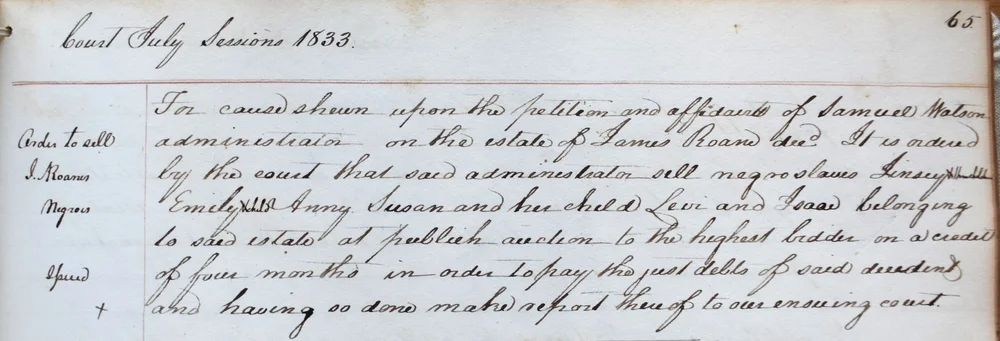 65
Court July Sessions 1833.
For cause shewn upon the petition and affidavit of Samuel Watson
Order to sell
administrator on the estate of James Roane decd. It is ordered
J. Roanes
by the court that said administrator sell negro slaves Jinsey
Negroes
Emily & child Anny Susan and her child Levi and Isaac belonging
to said estate at publick auction to the highest bidder on a credit
Issued
of four months in order to pay the just debts of said decedent
+
and having so done make report thereof to our ensuing court.